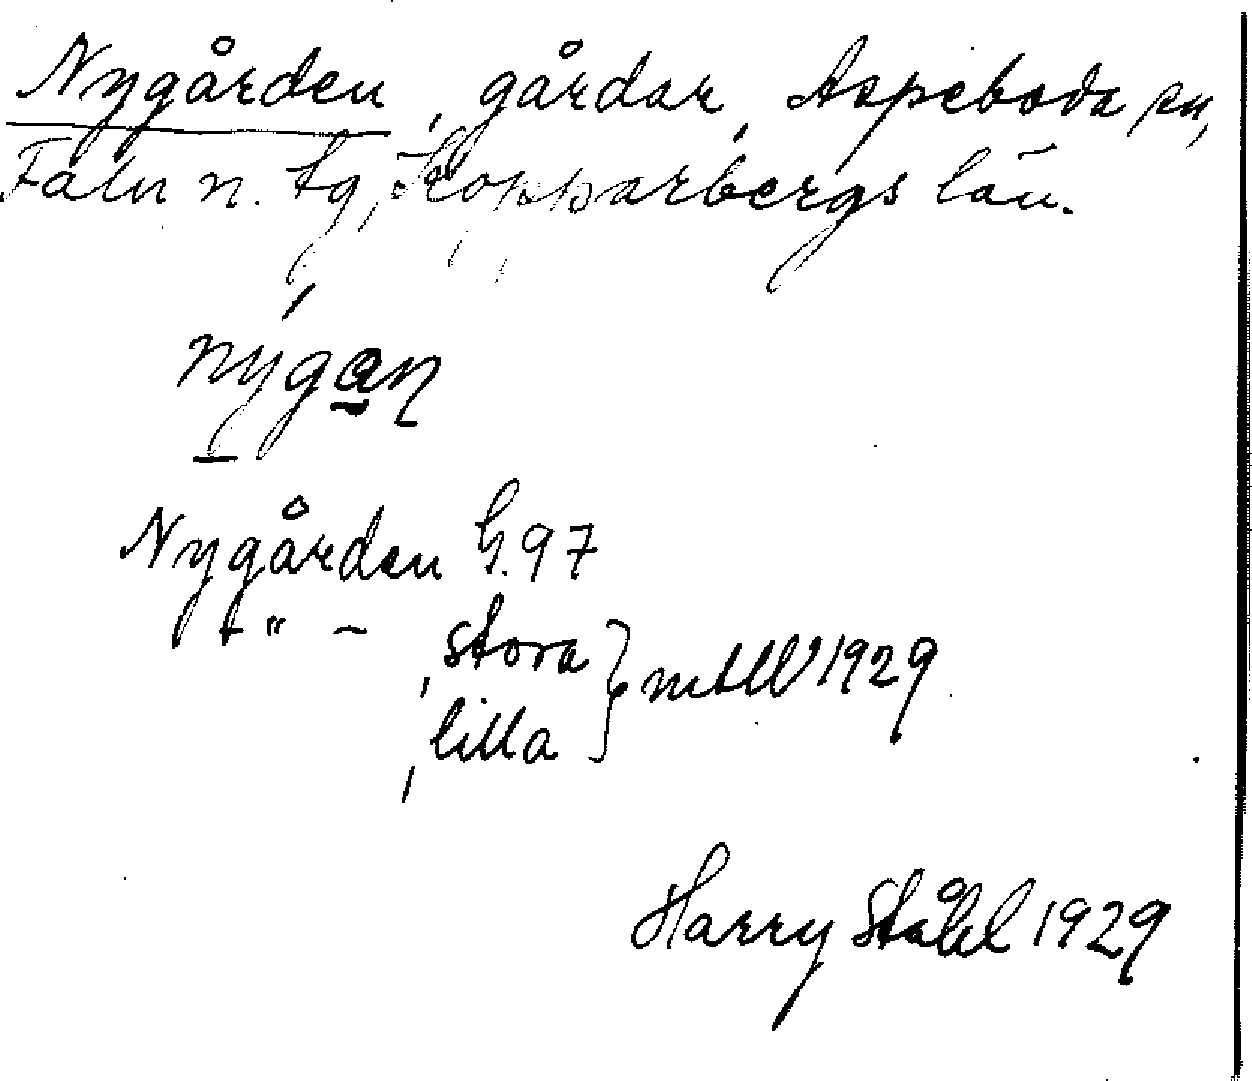 Nygården, gårdar, Aspeboda sn,
Falu n. tg, Kopparbergs län.
nýgan
Nygården G. 97
- " - , stora
, lilla } mtlW 1929
Harry Ståhl 1929